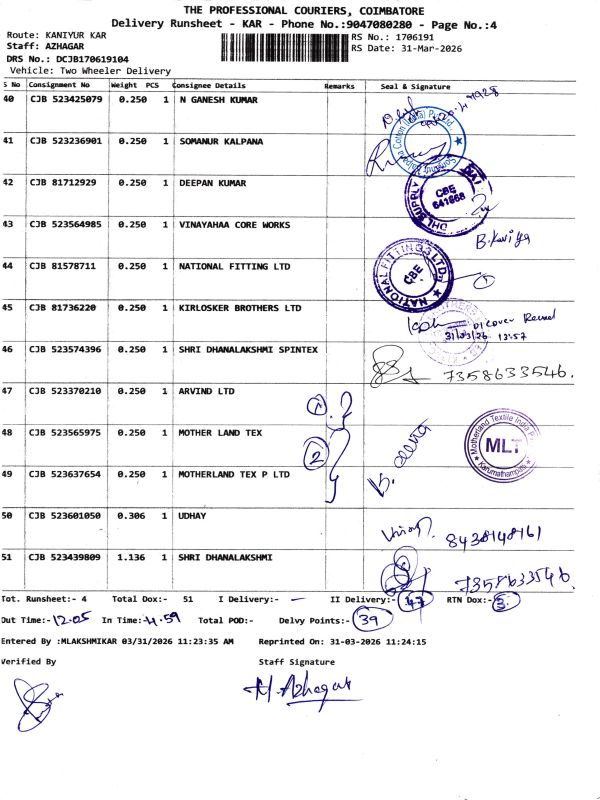 THE PROFESSIONAL COURIERS, COIMBATORE
Delivery Runsheet - KAR - Phone No.:9047080280 - Page No.:4
Route: KANIYUR KAR
RS No.: 1706191
Staff: AZHAGAR
RS Date: 31-Mar-2026
DRS No.: DCJB170619104
Vehicle: Two Wheeler Delivery
S No Consignment No Weight PCS Consignee Details Remarks Seal & Signature
40 CJB 523425079 0.250 1 N GANESH KUMAR
41 CJB 523236901 0.250 1 SOMANUR KALPANA
42 CJB 81712929 0.250 1 DEEPAN KUMAR
DHL SUPPLY CBE 641668
43 CJB 523564985 0.250 1 VINAYAHAA CORE WORKS
B.Kaviya
44 CJB 81578711 0.250 1 NATIONAL FITTING LTD
NATIONAL FITTINGS LTD CBE 1
45 CJB 81736220 0.250 1 KIRLOSKER BROTHERS LTD
31/03/26 13:57
46 CJB 523574396 0.250 1 SHRI DHANALAKSHMI SPINTEX
7358633546.
47 CJB 523370210 0.250 1 ARVIND LTD
1
48 CJB 523565975 0.250 1 MOTHER LAND TEX
2
Motherland Textile India MLT Karumathampatti
49 CJB 523637654 0.250 1 MOTHERLAND TEX P LTD
50 CJB 523601050 0.306 1 UDHAY
8438148161
51 CJB 523439809 1.136 1 SHRI DHANALAKSHMI
7358633546.
Tot. Runsheet:- 4 Total Dox:- 51 I Delivery:- — II Delivery:- 47 RTN Dox:- 3
Out Time:- 12.05 In Time:- 4.59 Total POD:- Delvy Points:- 39
Entered By :MLAKSHMIKAR 03/31/2026 11:23:35 AM Reprinted On: 31-03-2026 11:24:15
Verified By Staff Signature
M.Azhagar